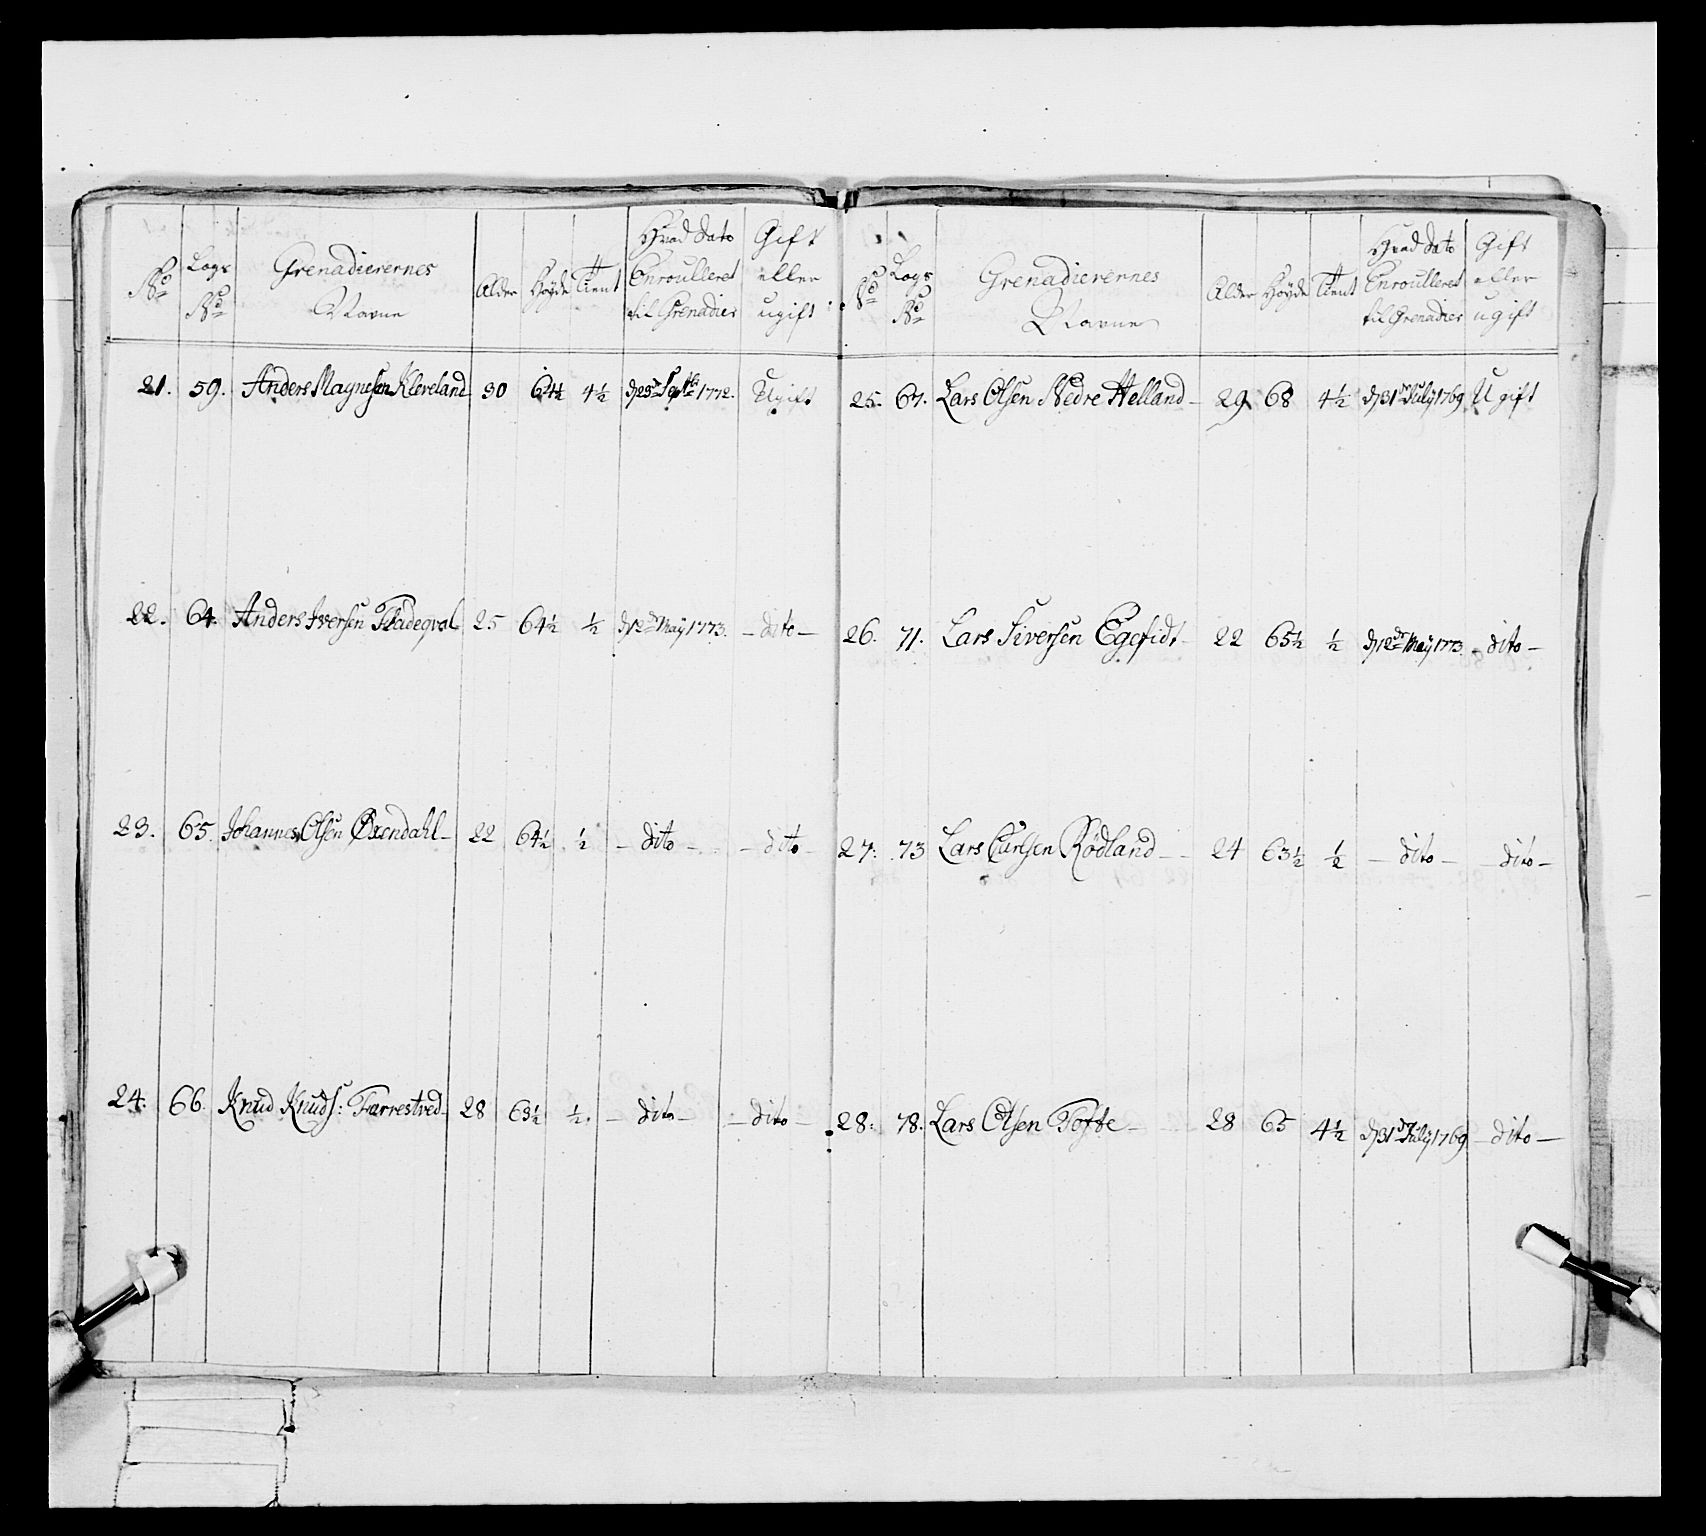 No Logs No Grenadierernes Navne Alder Høyde Tient Hvad Dato Enroulleret til Grenadier Gift eller ugift
21. 59. Anders Magnesen Kleveland 30 64½ 4½ d 23de Septbr 1772. Ugift
22. 64. Anders Iversen Fladeqval 25 64½ ½ d 12te May 1773. – dito –
23. 65. Johannes Olsen Øxendahl – 22 64½ ½ – dito – – dito –
24. 66. Knud Knuds: Farrestved 28 63½ ½. – dito – – dito –
No Logs No Grenadierernes Navne Alder Høyde Tient Hvad Dato Enroulleret til Grenadier Gift eller ugift
25. 67. Lars Olsen Nedre Helland – 29 68 4½ d 31te July 1769 Ugift
26. 71. Lars Siversen Egefidt – 22 65½ ½ d 12te May 1773. – dito –
27: 73 Lars Curlsen Rødland – 24 63½ ½ – dito – – dito –
28: 78. Lars Olsen Tofte – 28 65 4½ d 31te July 1769 – dito –